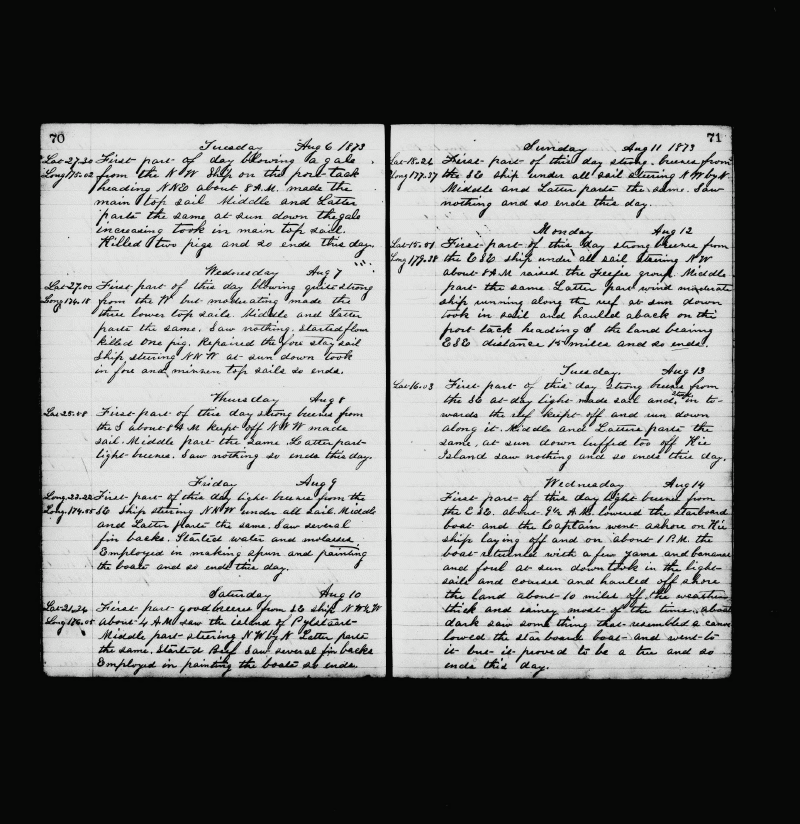 70
Tuesday Aug 6 1873
Lat 27.20 First part of day blowing a gale
Long 175.02 from the N W Ship on the port tack
heading N N E about 8 A.M. made the
main top sail Middle and Latter
parts the same at sun down the gale
increasing took in main top sail.
Killed two pigs and so ends this day.
Wednesday Aug 7
Lat 27.00 First part of this day blowing quite strong
Long 174.18 from the W but moderating made the
three lower top sails. Middle and Latter
parts the same. Saw nothing. Started flour
killed one pig. Repaired the fore stay sail
Ship steering N N W at sun down took
in fore and mizzen top sails so ends.
Thursday Aug 8
Lat 25.08 First part of this day strong breeze from
the S about 8 A M kept off N W W made
sail. Middle part the same Latter part
light breeze. Saw nothing so ends this day.
Friday Aug 9
Long. 23.22 First part of this day light breeze from the
Long. 174.55 SE Ship steering N N W under all sail. Middle
and Latter parts the same. Saw several
fin backs. Started water and molasses.
Employed in making spun and painting
the boats and so ends this day.
Saturday Aug 10
Lat 21.24 First part good breeze from SE ship N W & W
Long 176.05 about 4 A.M. saw the island of Pylstaart
Middle part steering N W by N Latter parts
the same. Started Beef Saw several fin backs
Employed in painting the boats so ends
71
Sunday Aug 11 1873
Lat 18.26 First part of this day strong breeze from
Long 177.37 the SE ship under all sail steering N W by N.
Middle and Latter parts the same. Saw
nothing and so ends this day.
Monday Aug 12
Lat 15.51 First part of this day strong breeze from
Long 179.28 the ESE ship under all sail steering N W
about 8 A M raised the Feejee group. Middle
part the same. Latter part wind moderate
ship running along the reef at sun down
took in sail and hauled aback on the
port tack heading S the land bearing
ESE distance 15 miles and so ends.
Tuesday. Aug 13
Lat 16.03 First part of this day strong breeze from
the SE at day light made sail and stood in to-
wards the reef kept off and run down
along it. Middle and Latter parts the
same, at sun down luffed too off Hie
Island saw nothing and so ends this day.
Wednesday Aug 14
First part of this day light breeze from
the ESE. about 9 A.M. lowered the starboard
boat and the Captain went ashore on Hie
ship laying off and on about 1 P.M. the
boat returned with a few yams and bananas
and foul at sun down took in the light
sails and courses and hauled off shore
the land about 10 miles off the weather
thick and rainey most of the time. about
dark saw some thing that resembled a canoe
lowed the star board boat and went to
it but it proved to be a tree and so
ends this day.